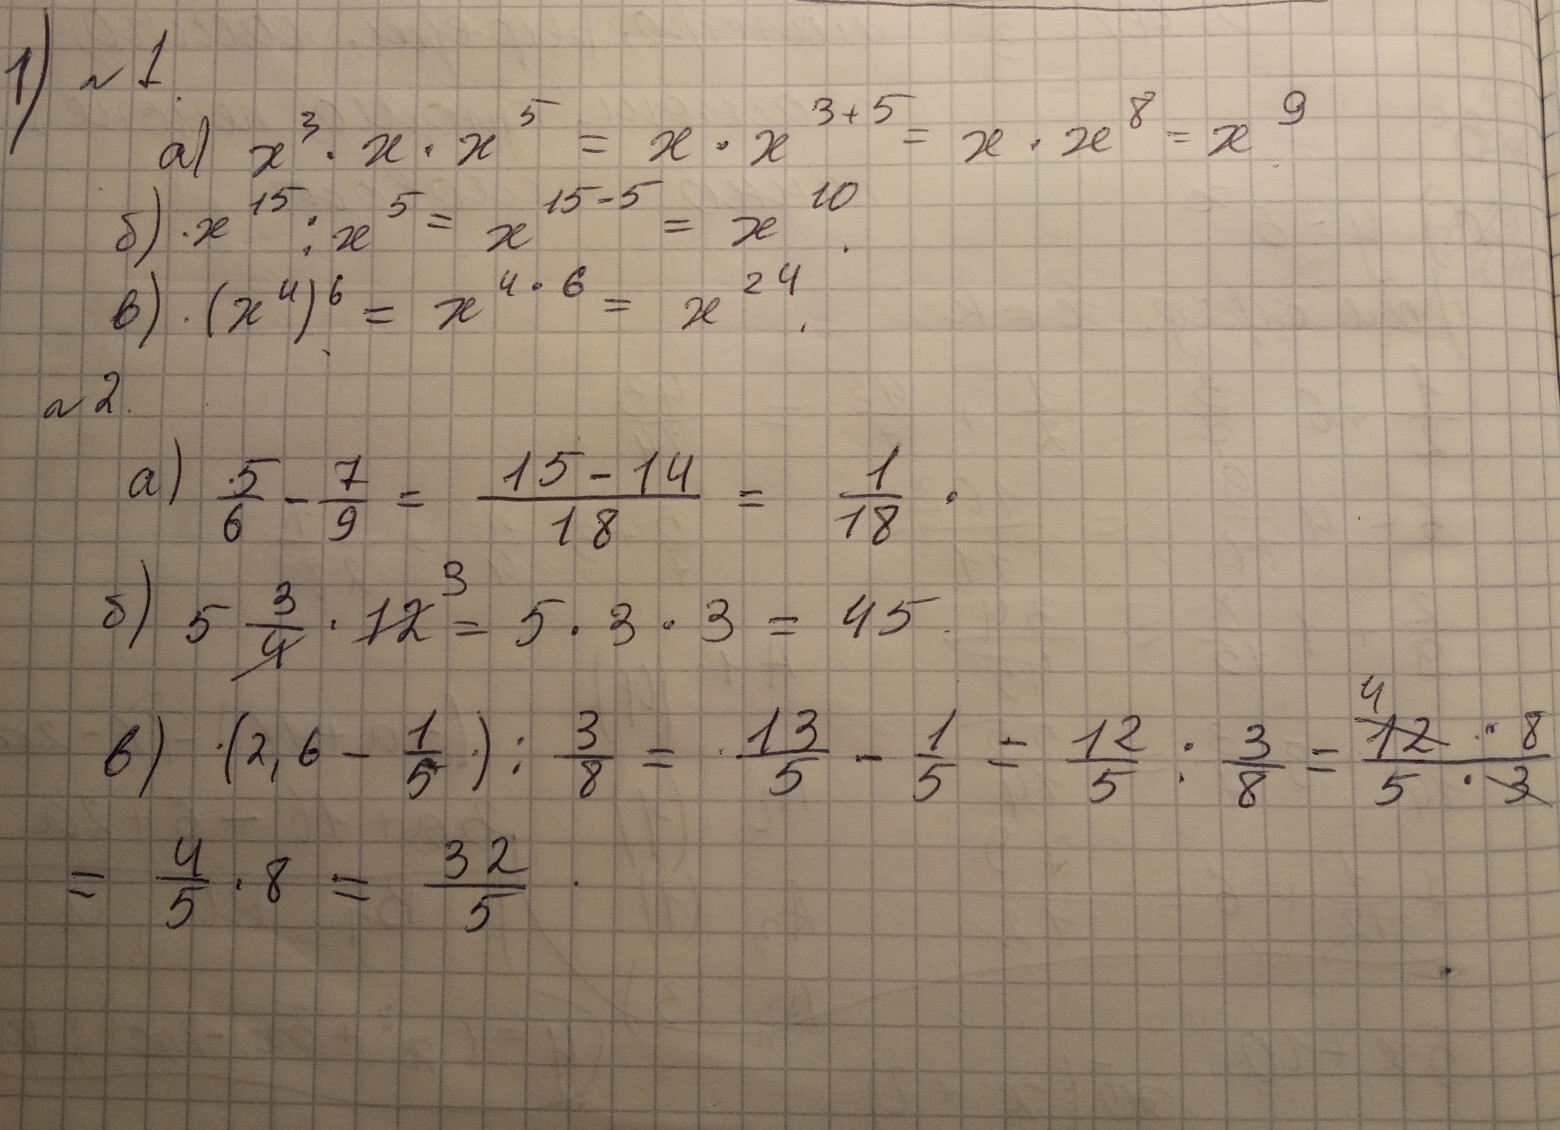 1) №1.
а) x³ · x · x⁵ = x · x³⁺⁵ = x · x⁸ = x⁹
б) x¹⁵ : x⁵ = x¹⁵⁻⁵ = x¹⁰.
в) (x⁴)⁶ = x⁴·⁶ = x²⁴.
№2.
а) 5/6 - 7/9 = (15-14)/18 = 1/18.
б) 5 3/4 · 12 ³ = 5 · 3 · 3 = 45.
в) (2,6 - 1/5) : 3/8 = 13/5 - 1/5 = 12/5 : 3/8 = ⁴ (12 · 8)/(5 · 3)
= 4/5 · 8 = 32/5.